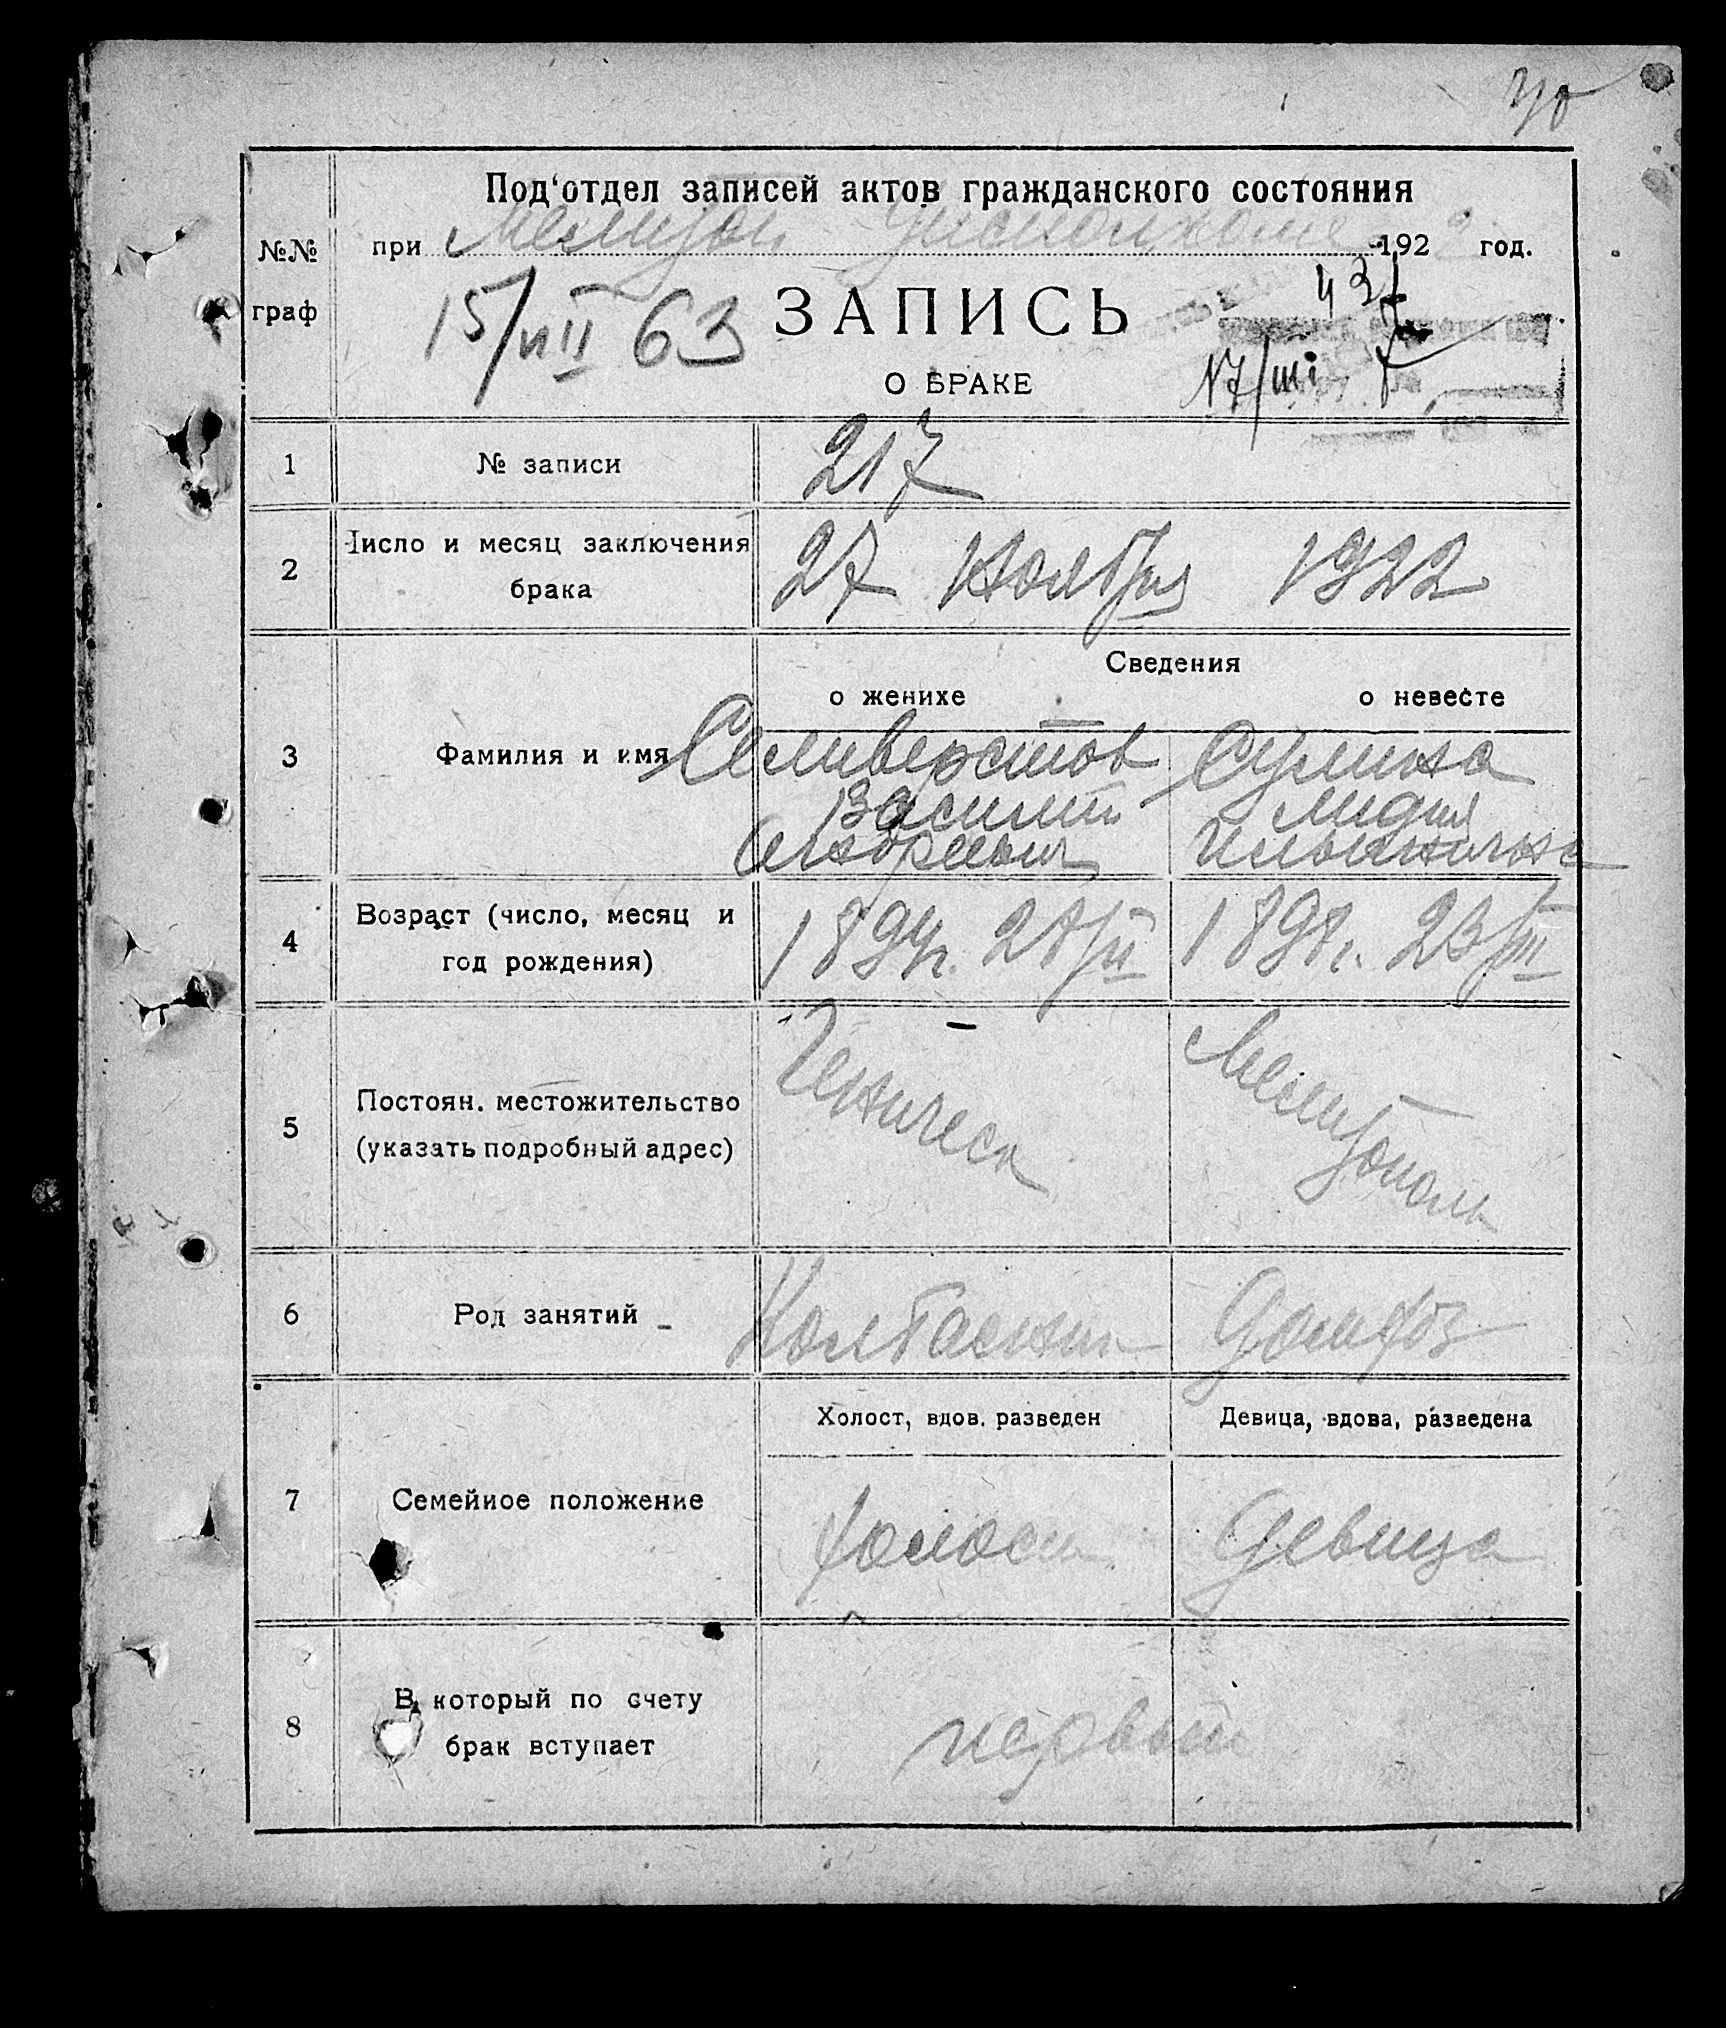 70
Под‘отдел записей актов гражданского состояния
№№ граф
при Мелитоп Уисполкоме 1922 год.
15/VIII 63 ЗАПИСЬ
О БРАКЕ
1 № записи 217
2 Число и месяц заключения брака 27 Ноября 1922
Сведения
о женихе о невесте
3 Фамилия и имя Селиверстов Сулина
Василий Лидия
Андреевич Ильинична
4 Возраст (число, месяц и год рождения) 1894г. 23/III
5 Постоян. местожительство (указать подробный адрес) Геническ Мелитополь
6 Род занятий Колбасник Домхоз
Холост, вдов. разведен Девица, вдова, разведена
7 Семейное положение холост Девица
8 В который по счету брак вступает первый